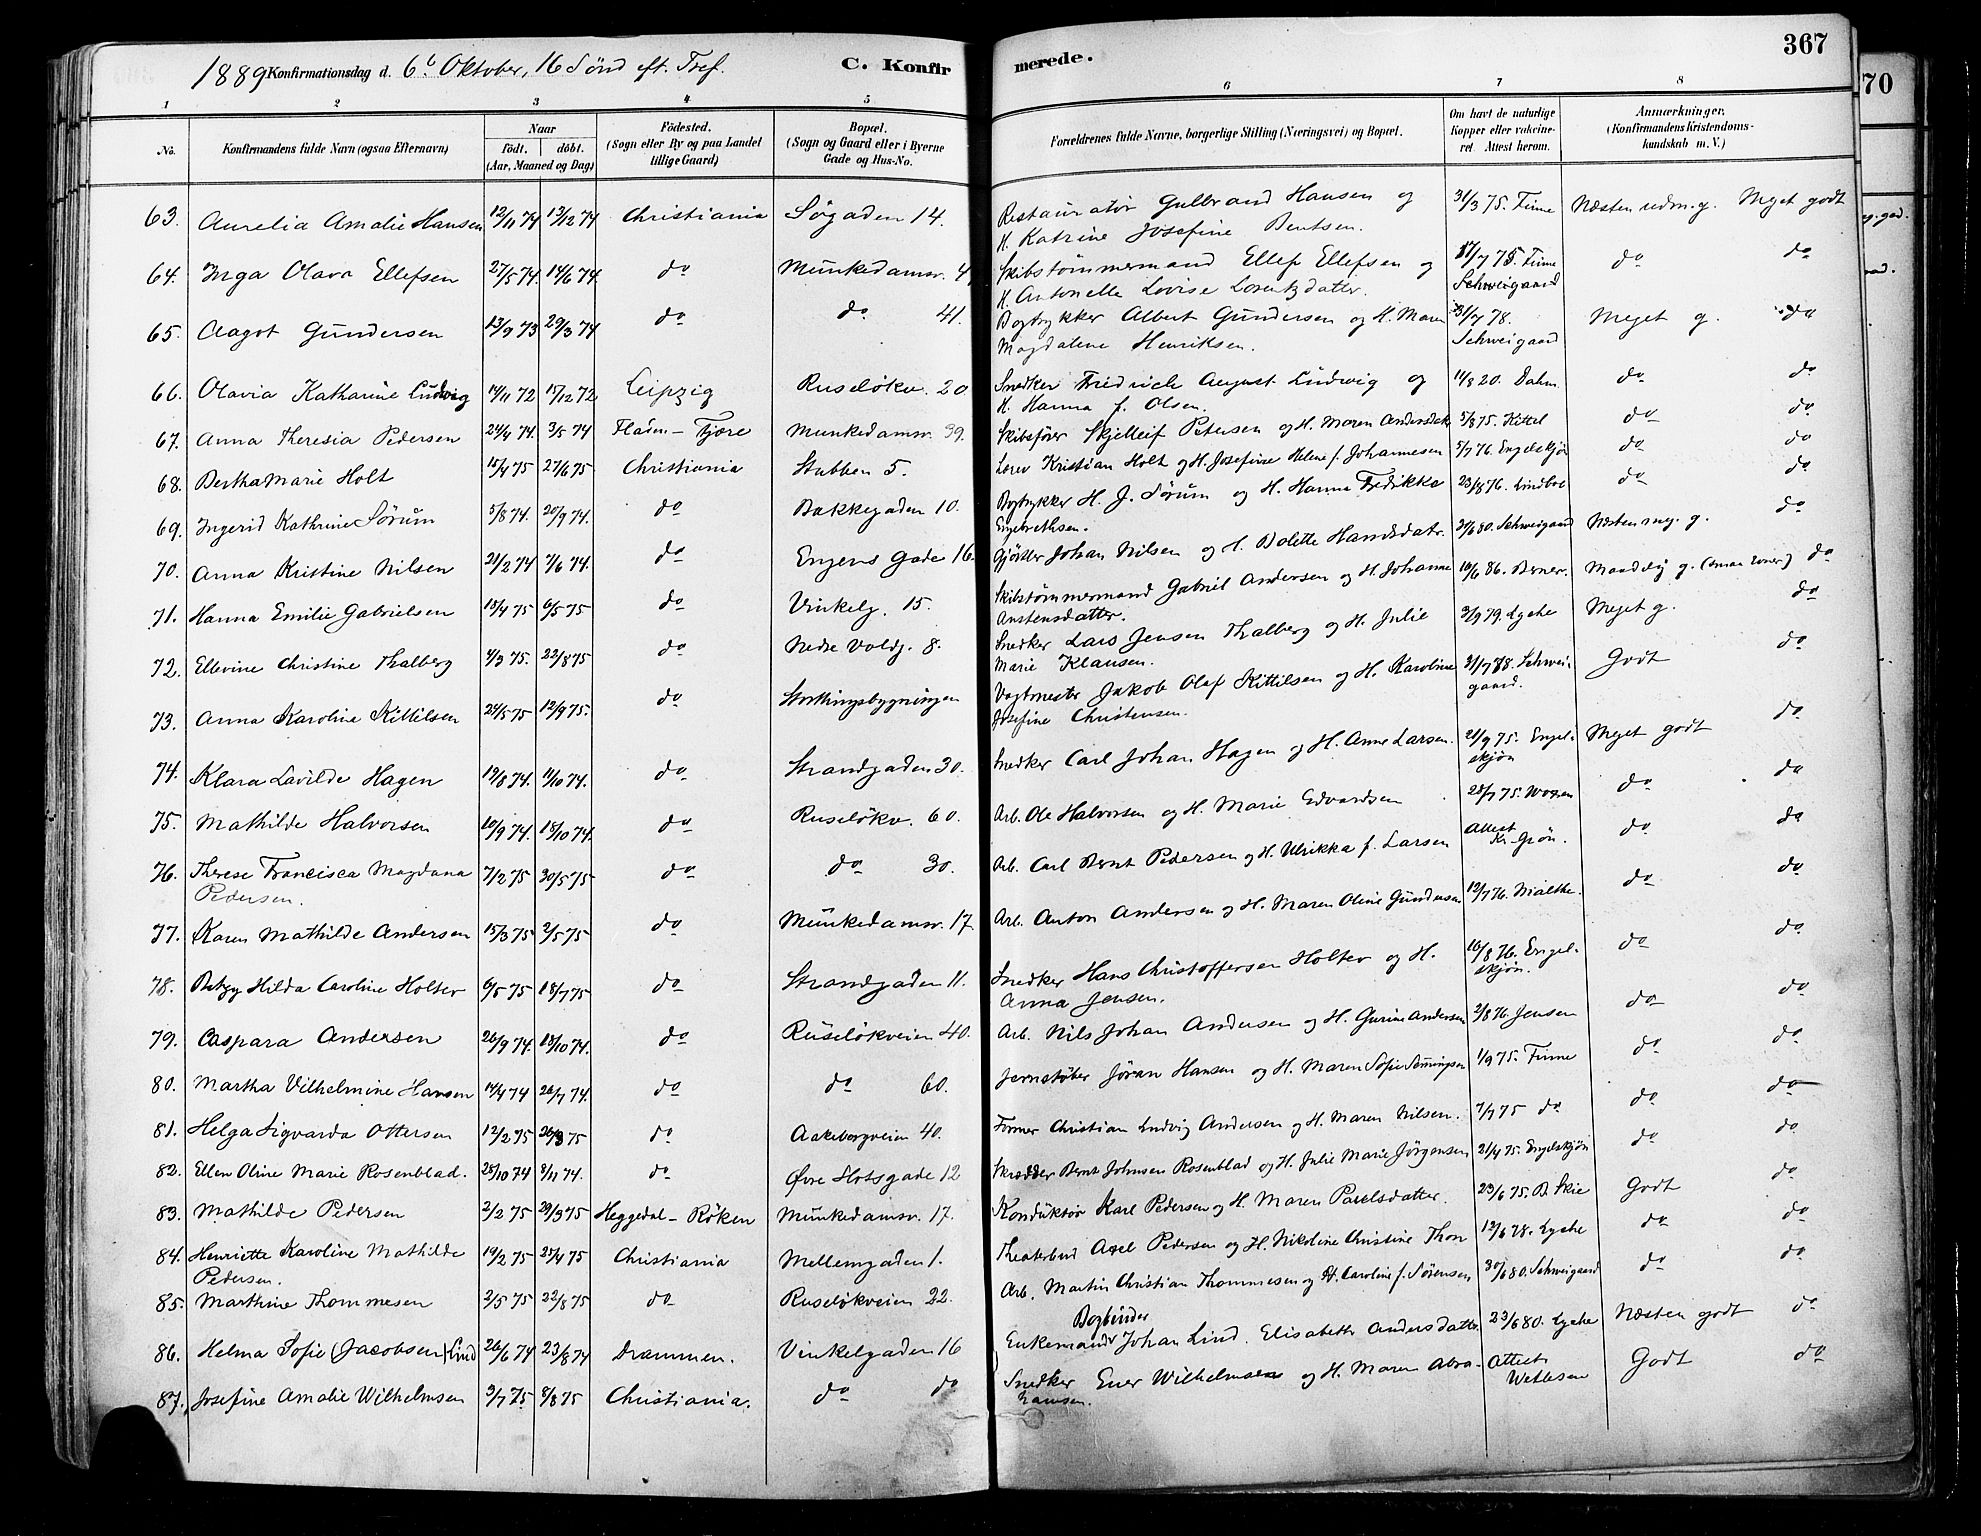 367
70
1889 Konfirmationsdag d. 6t Oktober, 16 Sønd eft. Tref. C. Konfir merede.
1 2 3 4 5 6 7 8
No. Konfirmandens fulde Navn (ogsaa Efternavn) Naar født, døbt. (Aar, Maaned og Dag) Fødested. (Sogn eller By og paa Landet tillige Gaard) Bopæl. (Sogn og Gaard eller i Byerne Gade og Hus-No. Forældrenes fulde Navne, borgerlige Stilling (Næringsvei) og Bopæl. Om havt de naturlige Kopper eller vakcineret. Attest herom. Anmærkninger. (Konfirmandens Kristendomskundskab m. V.)
63. Aurelia Amalie Hansen 12/11 74 13/12 74 Christiania Søgaden 14. Restauratør Gulbrand Hansen og H. Katrine Josefine Bentsen. 31/3 75. Finne Næsten udm. g. Meget godt
64. Inga Olava Ellefsen 27/5 74 14/6 74 do Munkedamsv. 4 Skibstømmermand Ellef Ellefsen og H. Antonette Lovise Lorentzdatter. 17/7 75 Finne Schweigaard do do
65. Aagot Gundersen 13/9 73 29/3 74 do do 41. Bogtrykker Albert Gundersen og H. Maren Magdalene Henriksen. 31/7 78. Schweigaard Meget g. do
66. Olavia Katharine Ludwig 14/11 72 15/12 72 Leipzig Ruseløkv. 20. Snedker Friedrich August Ludwig og H. Hanna f. Olsen. 11/8 20. Dahm do do
67. Anna Theresia Pedersen 24/4 74. 3/5 74 Fladen - Fjære Munkedamsv. 39. Skibsfører Skjelleif Petersen og H. Maren Andersdatr 5/8 75. Kittel do do
68. Bertha Marie Holt 15/4 75 27/6 75 Christiania Stubben 5. Kristian Holt og H. Josefine Helene f. Johannesen 5/7 76. Engelskjøn do do
69. Ingerid Kathrine Sørum 5/8 74. 20/9 74. do Bakkegaden 10. Bogtrykker H. J. Sørum og H. Hanna Fredrikke Engebrethsen. 23/8 76. Lindboe do do
70. Anna Kristine Nilsen 21/2 74 7/6 74. do Engens Gade 16 Gjørtler Johan Nilsen og H. Bolette Hansdatr. 30/6 80. Schweigaard Næsten meg. g. do
71. Hanna Emilie Gabrielsen 13/4 75 6/5 75 do Vinkelg. 15. Skibstømmermand Gabriel Andersen og H. Johanne Anstensdatter. 10/6 86. Berner. Maadelig g. (smaa Evner) do
72. Ellevine Christine Thalberg 4/3 75. 22/8 75 do Nedre Voldg. 8. Snedker Lars Jensen Thalberg og H. Julie Marie Klausen. 3/9 79. Lyche Meget g. do
73. Anna Karoline Kittilsen 25/5 75 12/9 75. do Storthingsbygningen Vagtmester Jakob Olaf Kittilsen og H. Karoline Josefine Christensen. 31/7 78. Schweigaard. Godt do
74. Klara Lavilde Hagen 19/8 74. 11/10 74. do Strandgaden 30. Snedker Carl Johan Hagen og H. Anne Larsen. 21/9 75. Engelskjøn Meget godt do
75. Mathilde Halvorsen 10/9 74. 18/10 74. do Ruseløkv. 60. Arb. Ole Halvorsen og H. Marie Edvardsen 28/7 75. do do
76. Therese Francisca Magdana Pedersen. 7/2 75 30/5 75 do do 30. Arb. Carl Bernt Pedersen og H. Ulrikka f. Larsen Attest Kr. Grøn. do do
77. Karen Mathilde Andersen 15/3 75 2/5 75 do Munkedamsv. 17. Arb. Anton Andersen og H. Maren Oline Gundersen 12/7 76. Malthe. do do
78. Betzy Hilda Caroline Holter 6/5 75 18/7 75 do Strandgaden 11. Snedker Hans Christoffersen Holter og H. Anna Jensen. 16/8 76. Engelskjøn. do do
79. Caspara Andersen 26/9 74. 18/10 74. do Ruseløkveien 40. Arb. Nils Johan Andersen og H. Gurine Andersen 2/8 76. Jensen do do
80. Martha Vilhelmine Hansen 14/4 74 26/7 74. do do 60. Jernstøber Jøran Hansen og H. Maren Sofie Semmingsen 1/9 75. Finne do do
81. Helga Sigvarda Ottersen 12/2 75 26/3 75 do Aakebergveien 40. Former Christian Ludvig Andersen og H. Maren Nilsen. 7/7 75 do do do
82. Ellen Oline Marie Rosenblad. 28/10 74 8/11 74. do Øvre Slotsgade 12 Skrædder Bernt Johnsen Rosenblad og H. Julie Marie Jørgensen 21/4 75. Engelskjøn do do
83. Mathilde Pedersen 2/2 75 29/3 75 Heggedal - Røken Munkedamsv. 17. Konduktør Karl Pedersen og H. Maren Paulsdatter. 23/6 75. B. Skie Godt do
84. Henriette Karoline Mathilde Pedersen. 19/2 75 25/4 75 Christiania Mellemgaden 1. Theaterbud Axel Pedersen og H. Nikoline Christine Thon 12/6 78. Lyche do do
85. Marthine Thommesen 2/5 75 22/8 75 do Ruseløkveien 22. Arb. Martin Christian Thommesen og H. Caroline f. Sørensen 30/6 80. Schweigaard do do
86. Helma Sofie (Jacobsen) Lind 26/6 74 23/8 74 Drammen. Vinkelgaden 16 Enkemand Bogbinder Johan Lind. Elisabeth Andersdatter. 23/6 80. Lyche Næsten godt do
87. Josefine Amalie Wilhelmsen 3/7 75 8/8 75 Christiania. do do Snedker Ener Wilhelmsen og H. Maren Abrahamsen. Attest Wetlesen Godt do